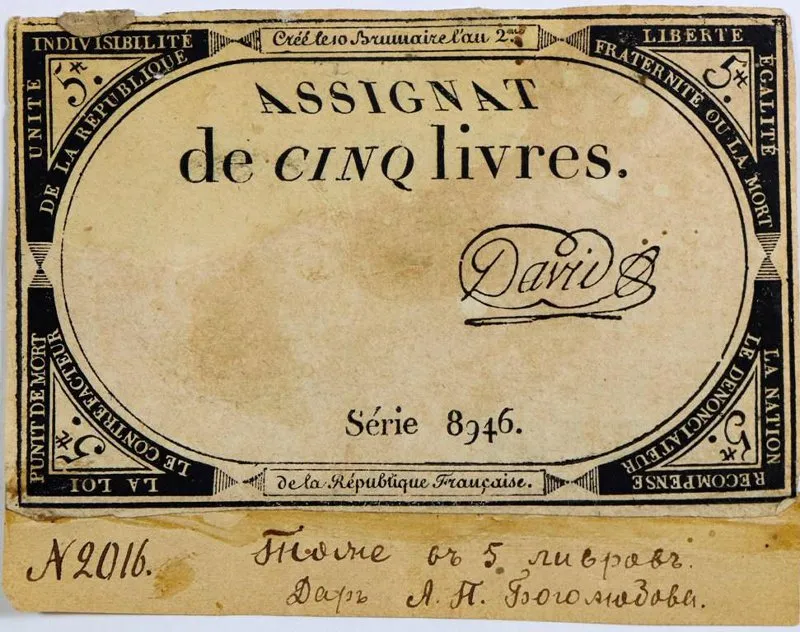 Créé le 10 Brumaire l'an 2.me
INDIVISIBILITÉ
UNITÉ
DE LA RÉPUBLIQUE
5.#
LIBERTÉ
ÉGALITÉ
FRATERNITÉ OU LA MORT
5.#
ASSIGNAT
de CINQ livres.
David
Série 8946.
PUNIT DE MORT
LE CONTREFACTEUR
LA LOI
5.#
LA NATION
LE DÉNONCIATEUR
RÉCOMPENSE
5.#
de la République Française.
N 2016.
въ 5 ливровъ.
Даръ А. П. Боголюбова.